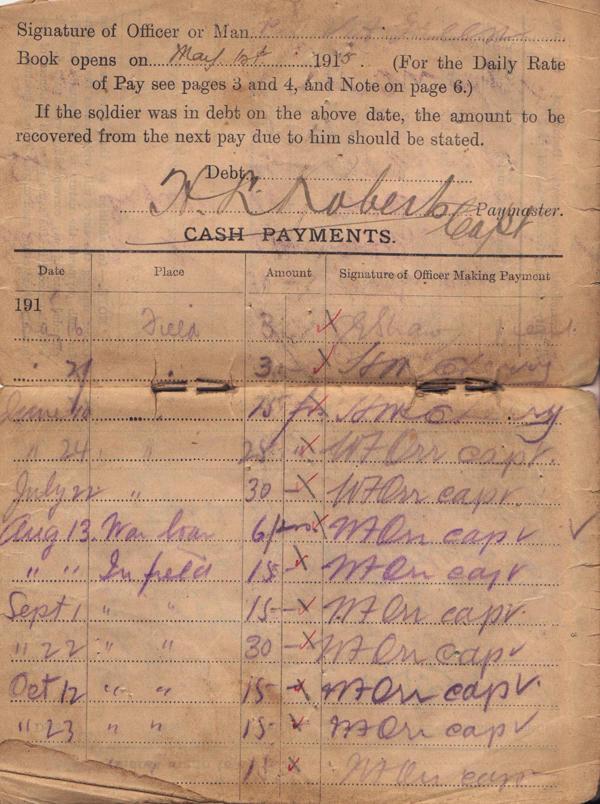 Signature of Officer or Man
Book opens on May 1st 1915. (For the Daily Rate
of Pay see pages 3 and 4, and Note on page 6.)
If the soldier was in debt on the above date, the amount to be
recovered from the next pay due to him should be stated.
Debt,
Roberts Paymaster.
Capt
CASH PAYMENTS.
Date Place Amount Signature of Officer Making Payment
191
16 Field 3 Shaw
" 29 " 3
June 10 " 15 fr
" 24 " 25 " WF Orr capt.
July 22 " 30 - WF Orr capt.
Aug 13 War loan 6/ WF Orr capt
" " In field 15 - WF Orr capt
Sept 1 " " 15 - WF Orr capt
" 22 " " 30 - WF Orr capt
Oct 12 " " 15 - WF Orr capt.
" 23 " " 15 - WF Orr capt
WF Orr capt